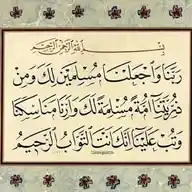 بسم الله الرحمن الرحيم
ربنا واجعلنا مسلمين لك ومن
ذريتنا أمة مسلمة لك وأرنا مناسكنا
وتب علينا إنك أنت التواب الرحيم